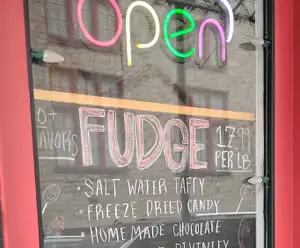 open
FUDGE 17.99
PER LB
• SALT WATER TAFFY
• FREEZE DRIED CANDY
• HOME MADE CHOCOLATE
DIVINITY